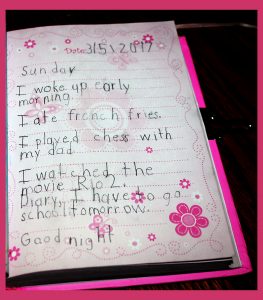 Date: 3/5/2017
Sunday
I woke up early
morning.
I ate french fries.
I played chess with
my dad.
I watched the
movie Rio 2.
Diary, I have to go
school tomorrow.
Good night